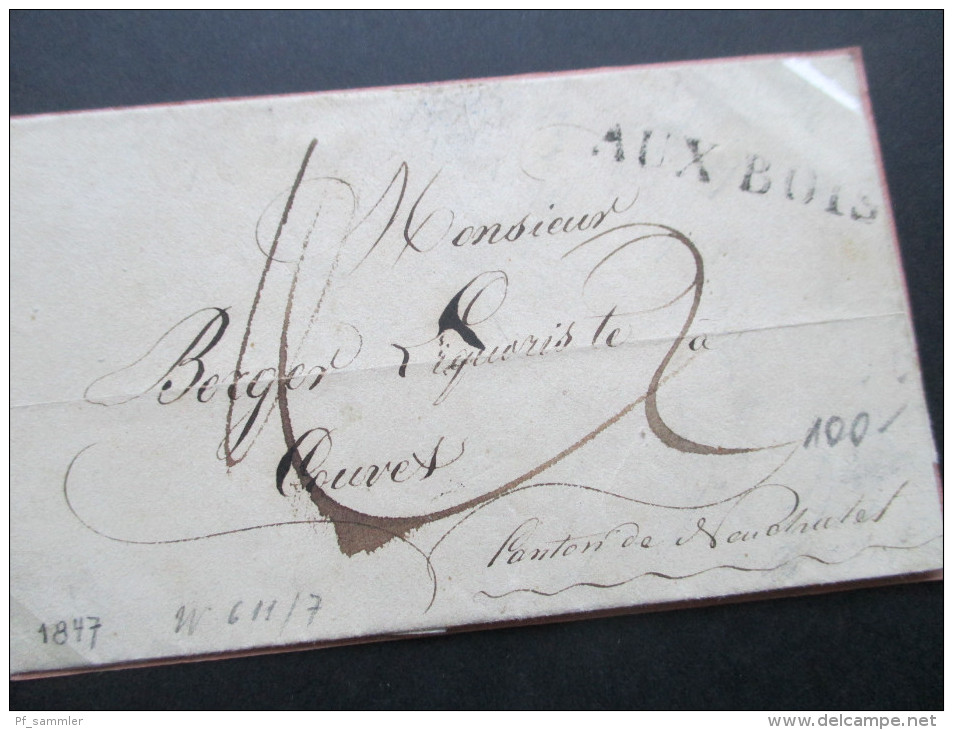 AUX BOIS
Monsieur
Berger Liquoriste à
Couvet
100.-
Canton de Neuchatel
1847
W 611/7
Pf_sammler
www.delcampe.net